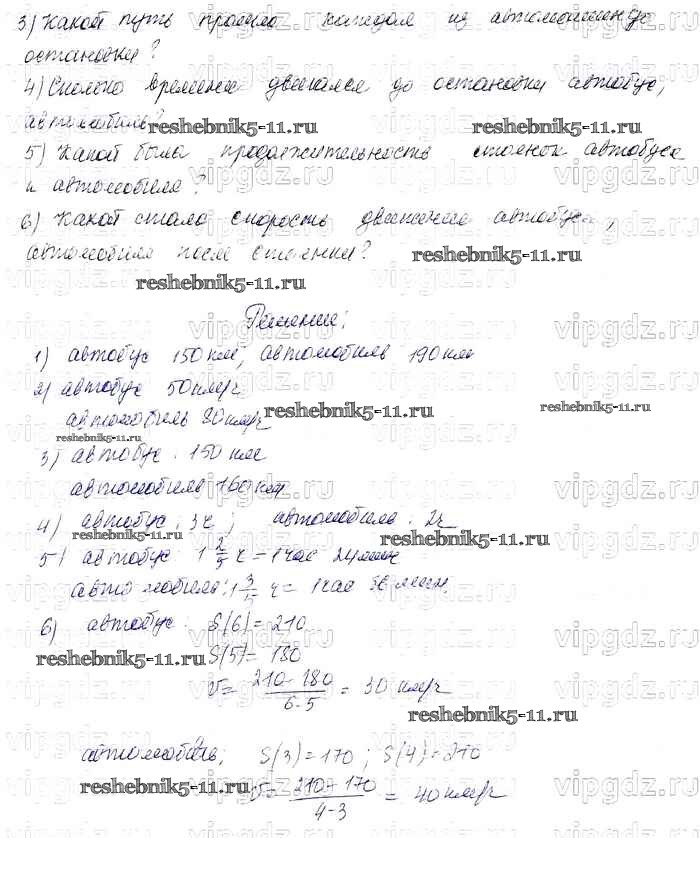 3) Какой путь прошла каждая из автомашин до
остановки?
4) Сколько времени двигался до остановки автобус,
автомобиль?
reshebnik5-11.ru reshebnik5-11.ru
5) Какой была продолжительность стоянок автобуса
и автомобиля?
6) Какой стала скорость движения автобуса,
автомобиля после стоянки?
reshebnik5-11.ru
reshebnik5-11.ru
Решение:
1) автобус 150 км, автомобиль 190 км
2) автобус 50 км/ч
автомобиль 80 км/ч
reshebnik5-11.ru reshebnik5-11.ru
reshebnik5-11.ru
3) автобус: 150 км
автомобиль 160 км
4) автобус: 3 ч; автомобиль: 2 ч
reshebnik5-11.ru reshebnik5-11.ru
5) автобус 1 2/5 ч = 1 час 24 мин
автомобиль: 1 3/5 ч = 1 час 36 мин.
6) автобус: S(6) = 210
reshebnik5-11.ru S(5) = 180
v = (210 - 180)/(6-5) = 30 км/ч
reshebnik5-11.ru
автомобиль; S(3) = 170; S(4) = 210
reshebnik5-11.ru v = (210 - 170)/(4-3) = 40 км/ч
vipgdz.ru vipgdz.ru vipgdz.ru vipgdz.ru